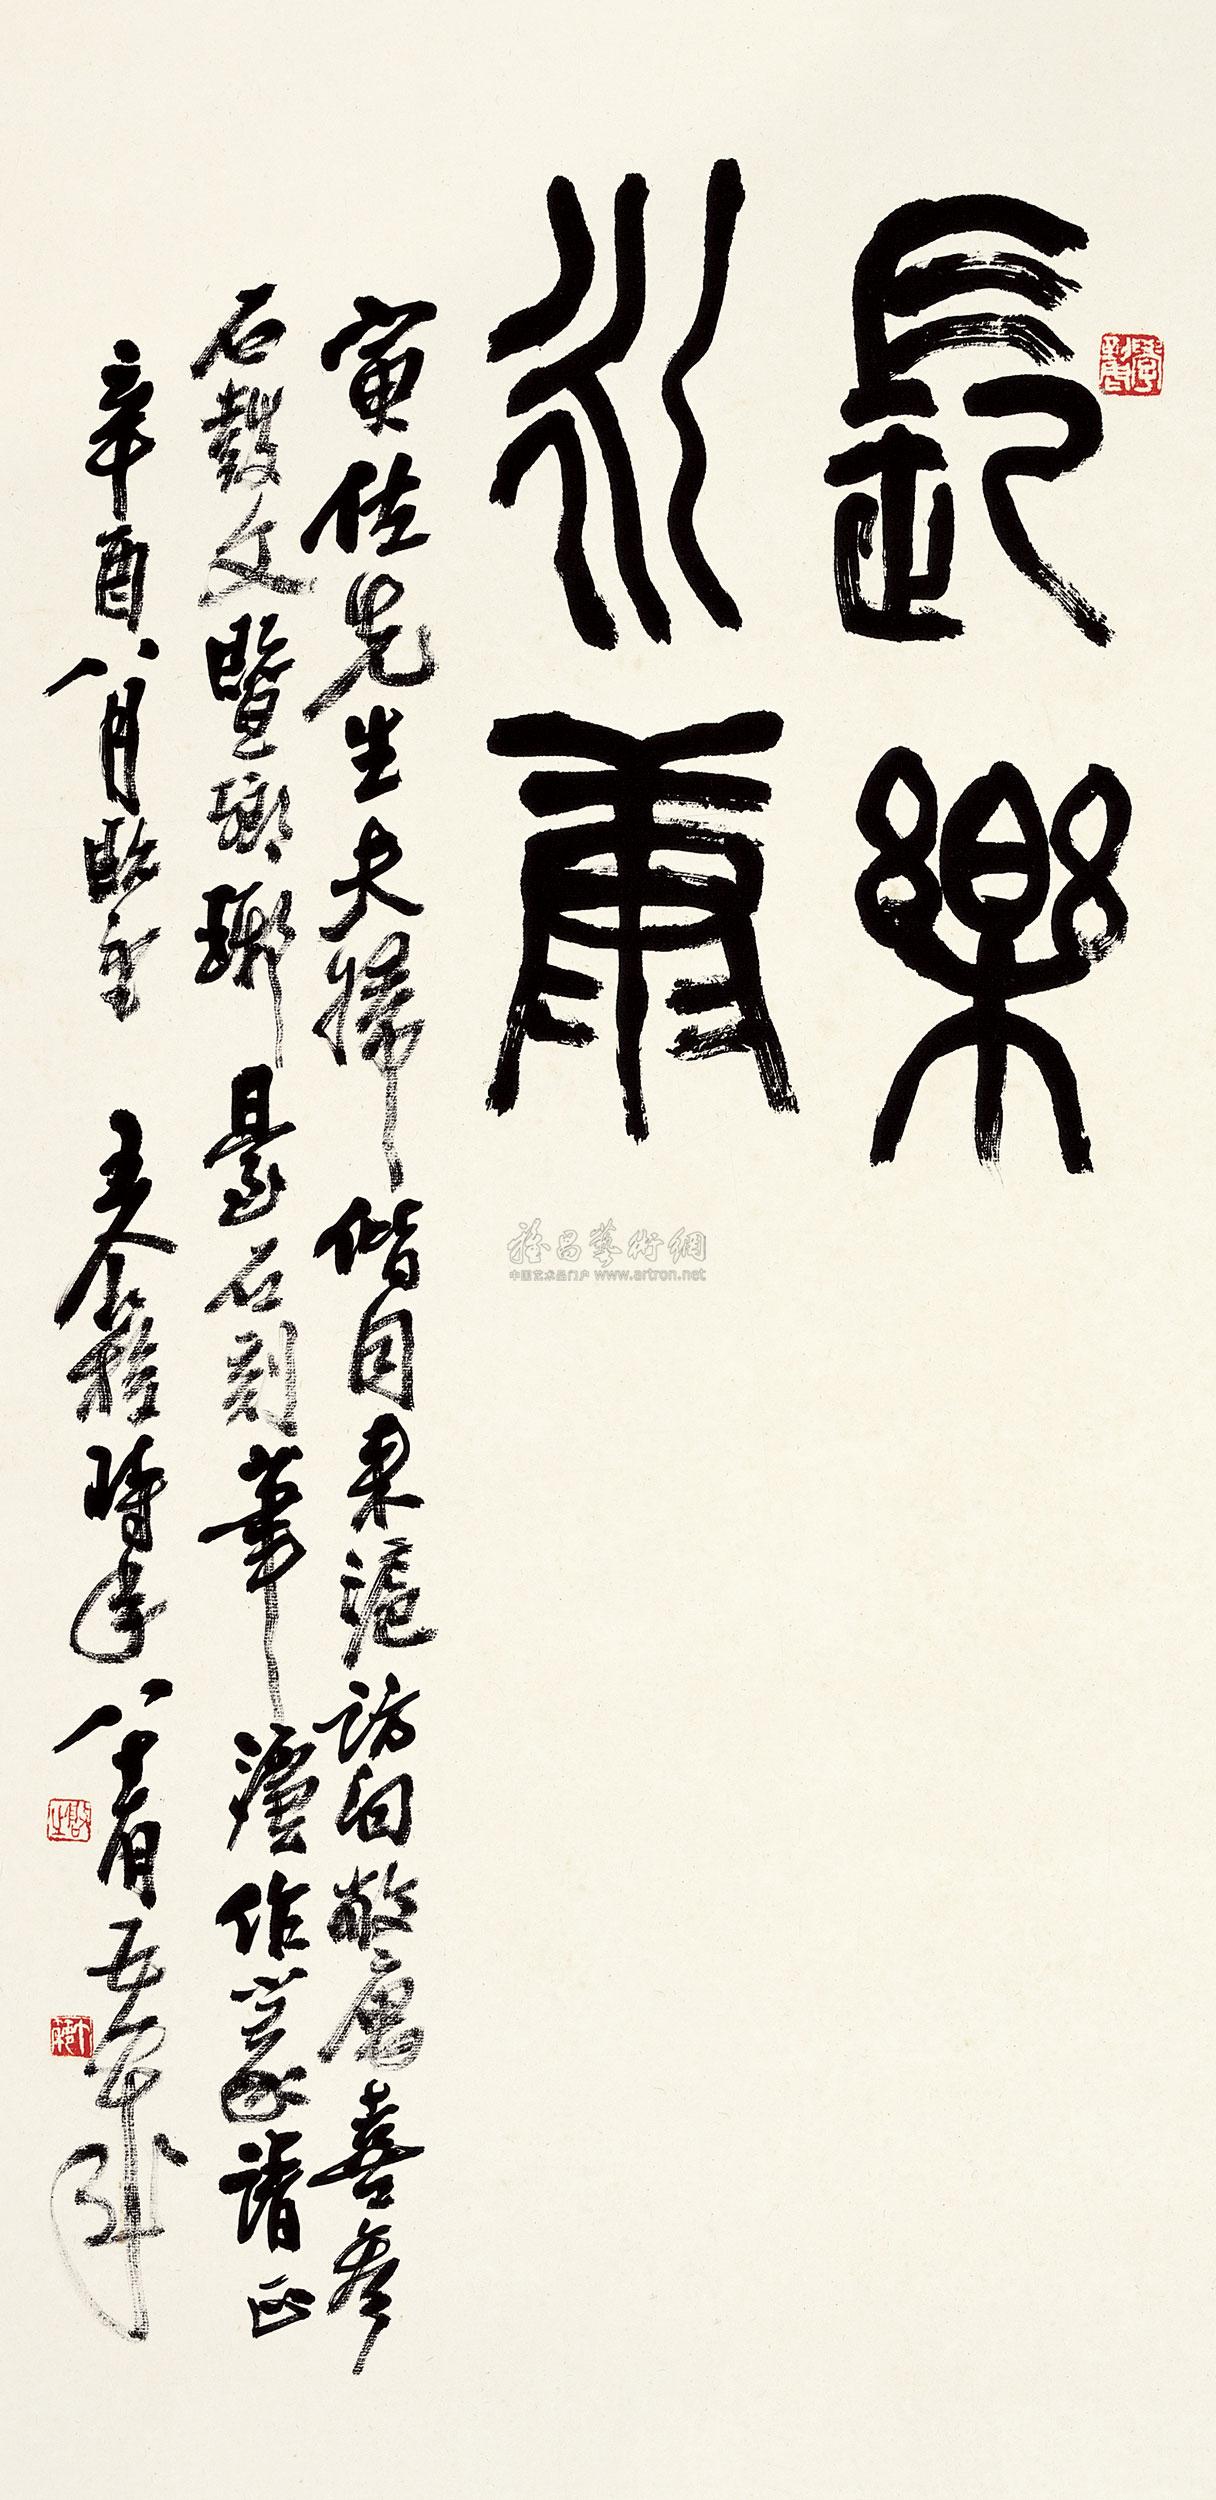 長樂
永康
寅佐先生夫婦偕同來滬訪问敝廬喜參
石鼓文暨瑯琊臺石刻筆灋作篆請正
辛酉八月既望 王个簃時年八十有五
雅昌藝術網
中国艺术品门户 www.artron.net